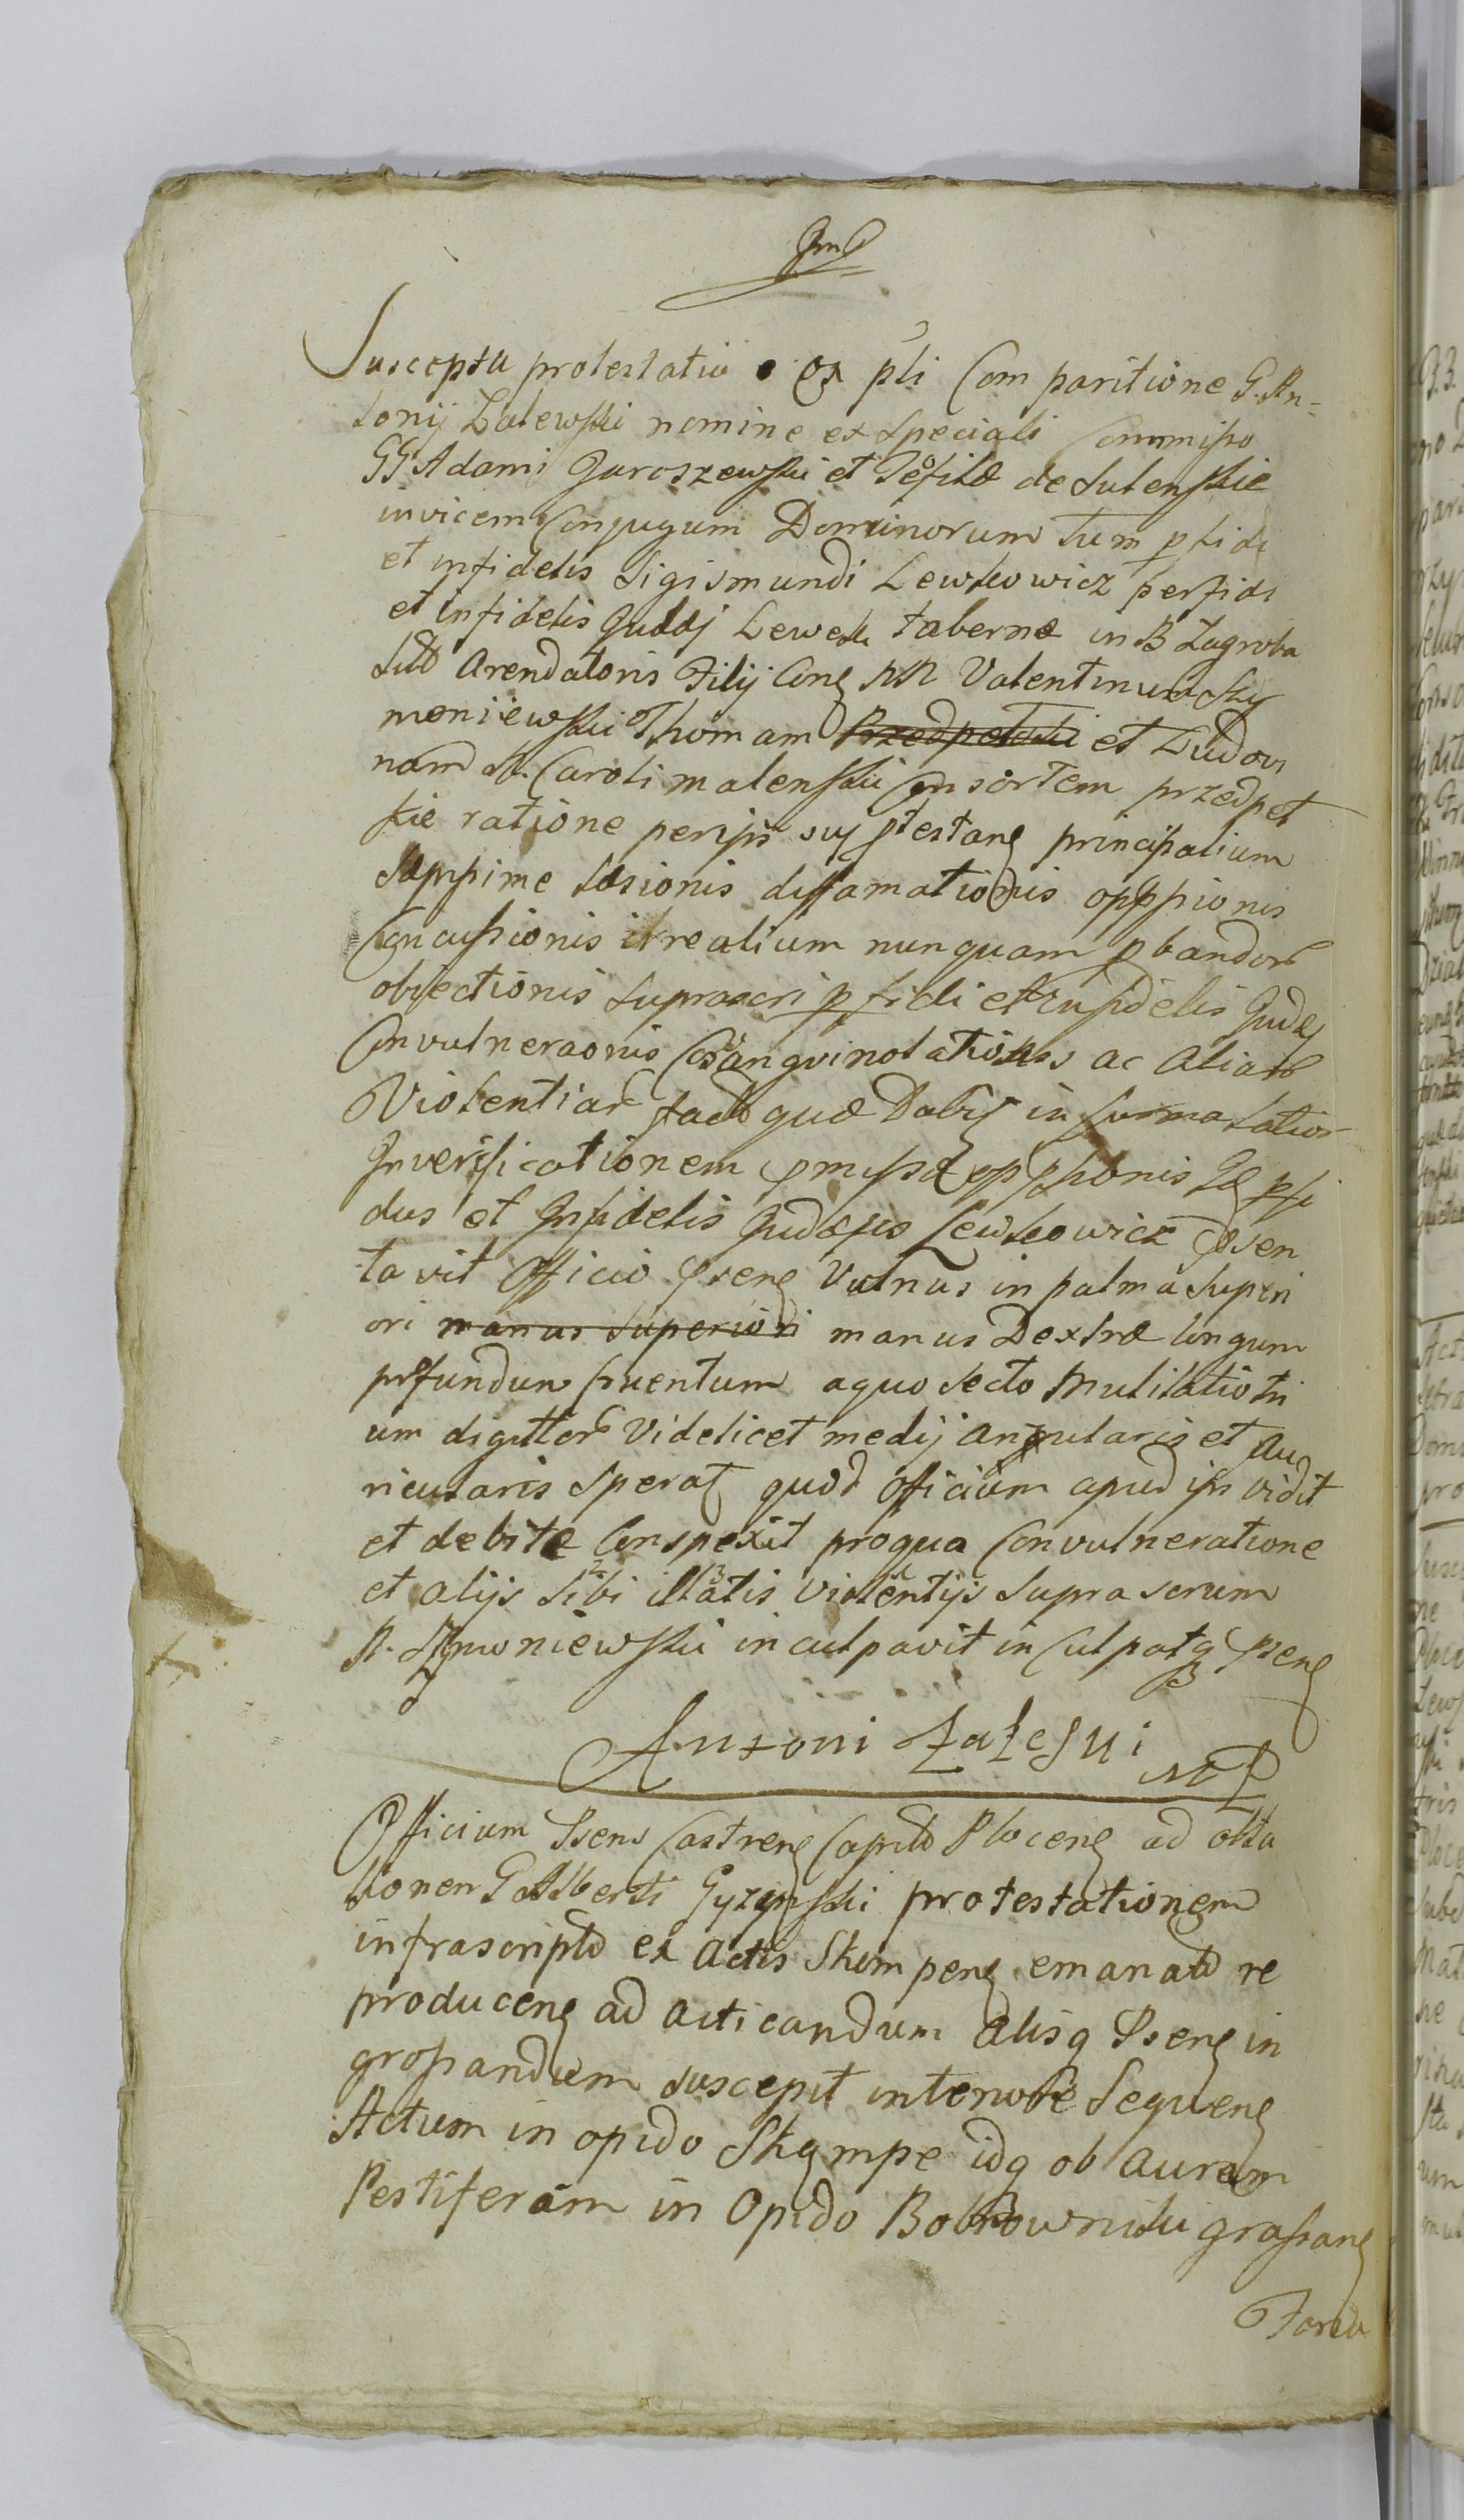 Suscepta protestatio ex pli Comparitione G. An=
tonij Zalewski nomine ex speciali Commisso
GG Adami Jaroszewski et Teofilæ de Sulenskie
invicem Conjugum Dominorum Tum pfidi
et infidelis Sigismundi Lewkowicz perfidi
et infidelis Judæj Lewek tabernæ in B Zagroba
Arendatoris Filij Cong NN Valentinum Szy
moniewski Thomam Przedpelski et Ludovi
nam N. Caroli malenski Consortem przedpel
skie ratione principalium
læsionis diffamationis opppionis
Concussionis irrealium nunquam pbandor
objectionis suprascri pfidi et infidelis Judæj
Convulneraonis Cosangvinolationis ac aliar
Violentiar quæ in forma latior
In verificationem pmissæ oppshonis Id pfi
dus et Infidelis Judæus Lewkowicz psen
tavit Officio pseng Vulnus in palma superi
ori manus superiori manus Dextræ longum
pfundum cruentum aquo secto Mutilatio tri
um digitor Videlicet medij angularis et Au
ricularis sperat quod Officium apud ips vidit
et debite Conspexit proqua Convulneratione
et alijs sibi illatis violentijs supra scrum
N. Szymoniewski inculpavit inculpatq pseng
Antoni Zaleski mp
Officium Psens Castreng Capitd Ploceng ad oblla
tionem G Alberti Gyzynski protestationem
infrascriptd ex Actis Skompeng emanatd re
produceng ad acticandum alisq Pseng in
grossandum suscepit intenore Sequeng
Actum in opido Skympe idq ob auram
Pestiferam in Opido Bobrowniki grassang
Feria